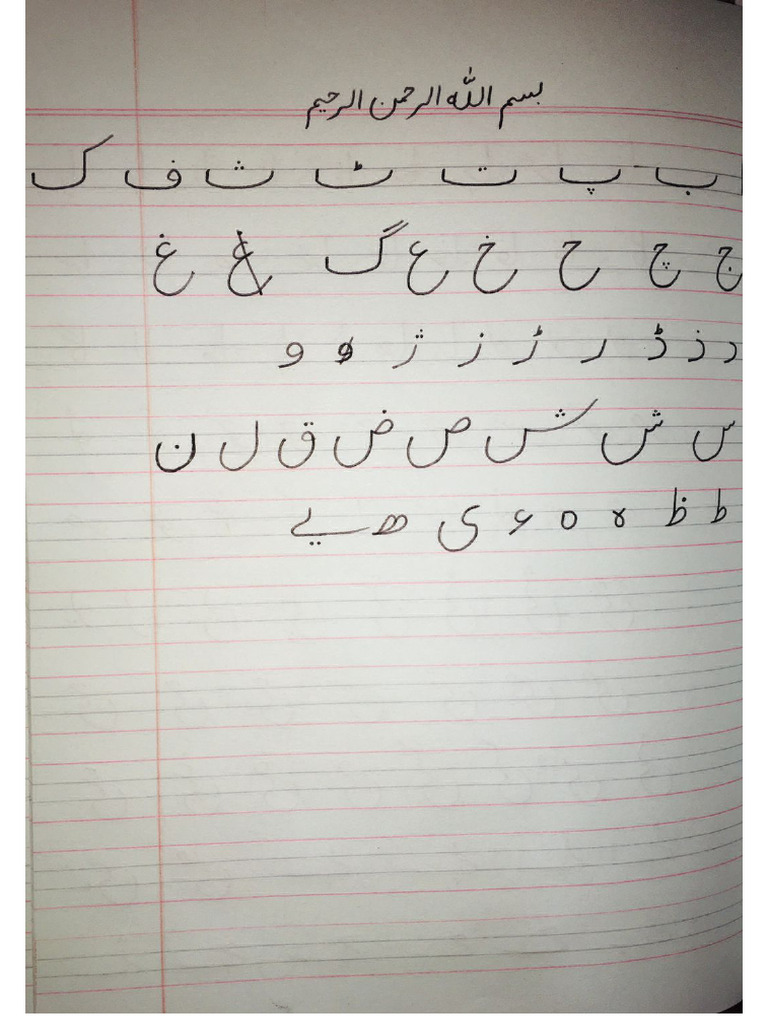 بسم الله الرحمن الرحیم
ا ب پ ت ٹ ث ف ک
ج چ ح خ ع گ غ
د ذ ڈ ر ڑ ز ژ و
س ش ش ص ض ق ل ن
ط ظ ۃ ہ ء ی ھ ے